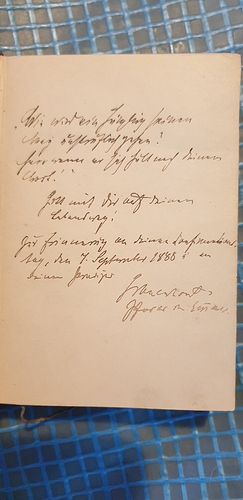 „Wie wird ein Jüngling seinen
Weg unsträflich gehen?
Wenn er sich hält nach deinem
Wort!"
Gott mit dir auf deinem
Lebensweg!
Zur Erinnerung an deinen Konfirmations-
tag, den 7. September 1888 u. an
deinen Prediger
Pfarrer in